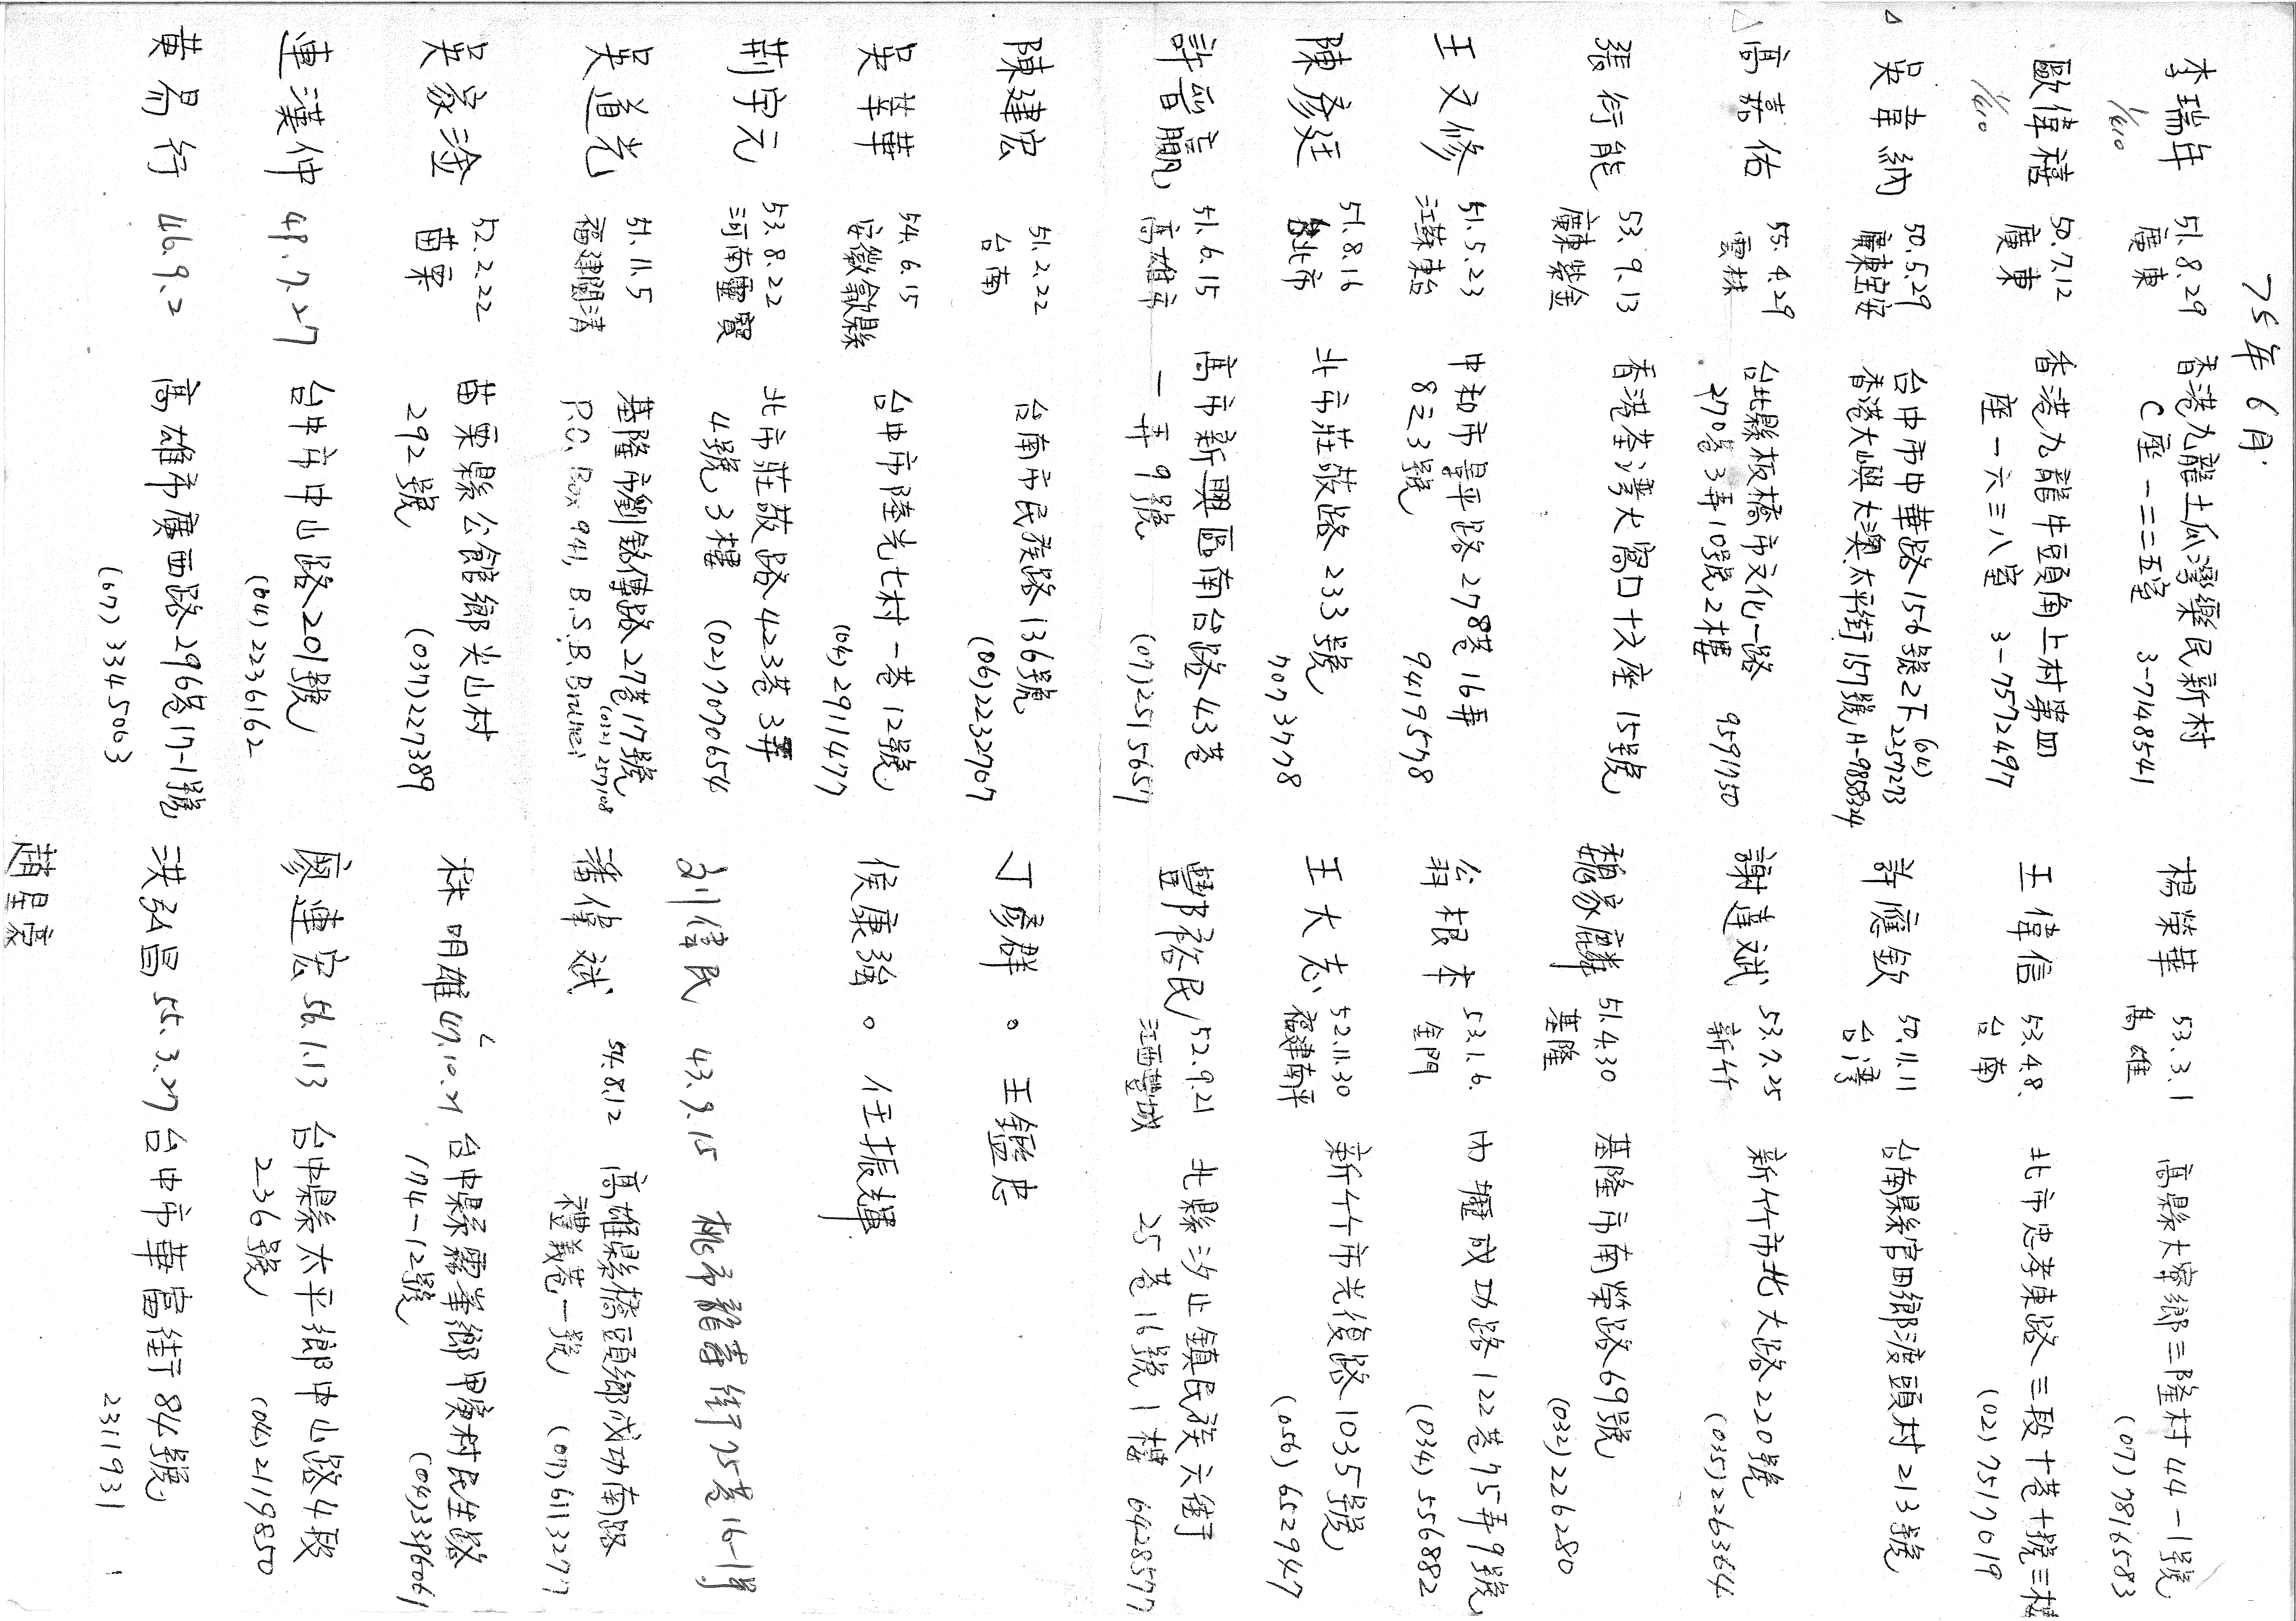 75年6月.
李瑞年 51.8.29 香港九龍土瓜灣樂民新村
1/610 廣東 C座一二二五室 3-7148541
歐偉禧 50.7.12 香港九龍牛頭角上村第四
1/610 廣東 座一六三八室 3-7572497
△ 吳韋納 50.5.29 台中市中華路156號2F (04)2257273
廣東寶安 香港大嶼大澳太平街157號 H-9858324
△ 高嘉佑 55.4.29 台北縣板橋市文化一路
雲林 270巷3弄10號2樓 9591750
張衍能 53.9.13 香港荃灣大窩口十六座15號
廣東紫金
王又修 51.5.23 中和市景平路278巷16弄
江蘇東台 8之3號 9419578
陳彥廷 51.8.16 北市莊敬路233號
台北市 7073778
許晉贏 51.6.15 高市新興區南台路43巷
高雄市 一弄9號 (07)2515657
陳建宏 51.2.22 台南市民族路136號
台南 (06)2232707
吳華華 54.6.15 台中市陸光七村一巷12號
安徽歙縣 (04)2911477
荊守元 53.8.22 北市莊敬路423巷3弄
河南靈寶 4號3樓 (02)7070654
吳道光 51.11.5 基隆市劉銘傳路27巷17號
福建閩清 P.O. Box 941, B.S.B. Brunei (032)257108
吳家淦 52.2.22 苗栗縣公館鄉尖山村
苗栗 292號 (037)227389
連漢仲 48.7.27 台中市中山路201號
(04)2236162
黃易行 46.9.2 高雄市廣西路296巷17-1號
(07)3345063
楊榮華 53.3.1 高縣大寮鄉三隆村44-1號
高雄 (07)7816583
王偉信 53.4.8. 北市忠孝東路三段十巷十號三樓
台南 (02)7517019
許應欽 50.11.11 台南縣官田鄉渡頭村213號
台灣
謝達斌 53.7.25 新竹市北大路220號
新竹 (035)226364
魏家麟 51.4.30 基隆市南榮路69號
基隆 (032)226280
翁根本 53.1.6. 中壢成功路122巷75弄9號
金門 (034)556882
王大志 52.11.30 新竹市光復路1035號
福建南平 (056)652947
豐裕民 52.9.21 北縣汐止鎮民族六街
江西豐城 25巷16號1樓 6428577
丁彥群。王鑑忠
侯康強。任振輝
劉偉民 43.9.15 桃市龍壽街75巷16-1號
潘偉斌 54.8.12 高雄縣橋頭鄉成功南路
禮義巷一號 (07)6113277
林明雄 47.10.21 台中縣霧峯鄉甲寅村民生路
174-12號 (04)3396061
廖連宏 56.1.13 台中縣太平鄉中山路4段
236號 (04)2119850
洪弘昌 55.3.27 台中市華富街84號
2311931
趙星豪